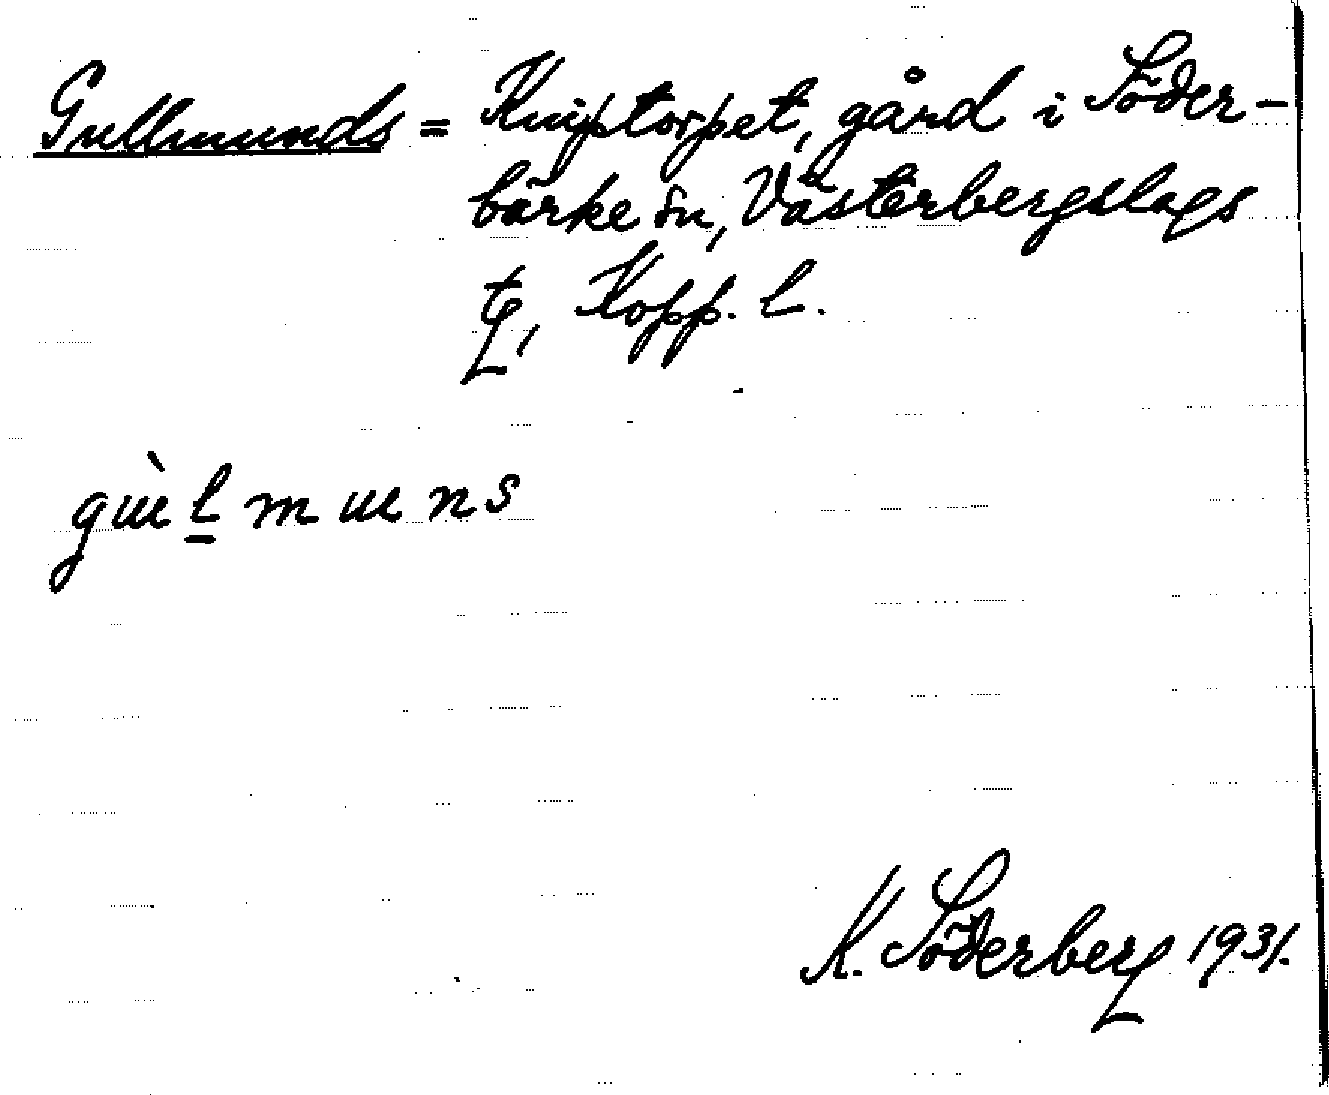 Gullmunds = Kniptorpet, gård i Söder-
bärke sn, Västerbergslags
tg, Kopp. l.
gɯ̀l̲mɯns
K. Söderberg 1931.